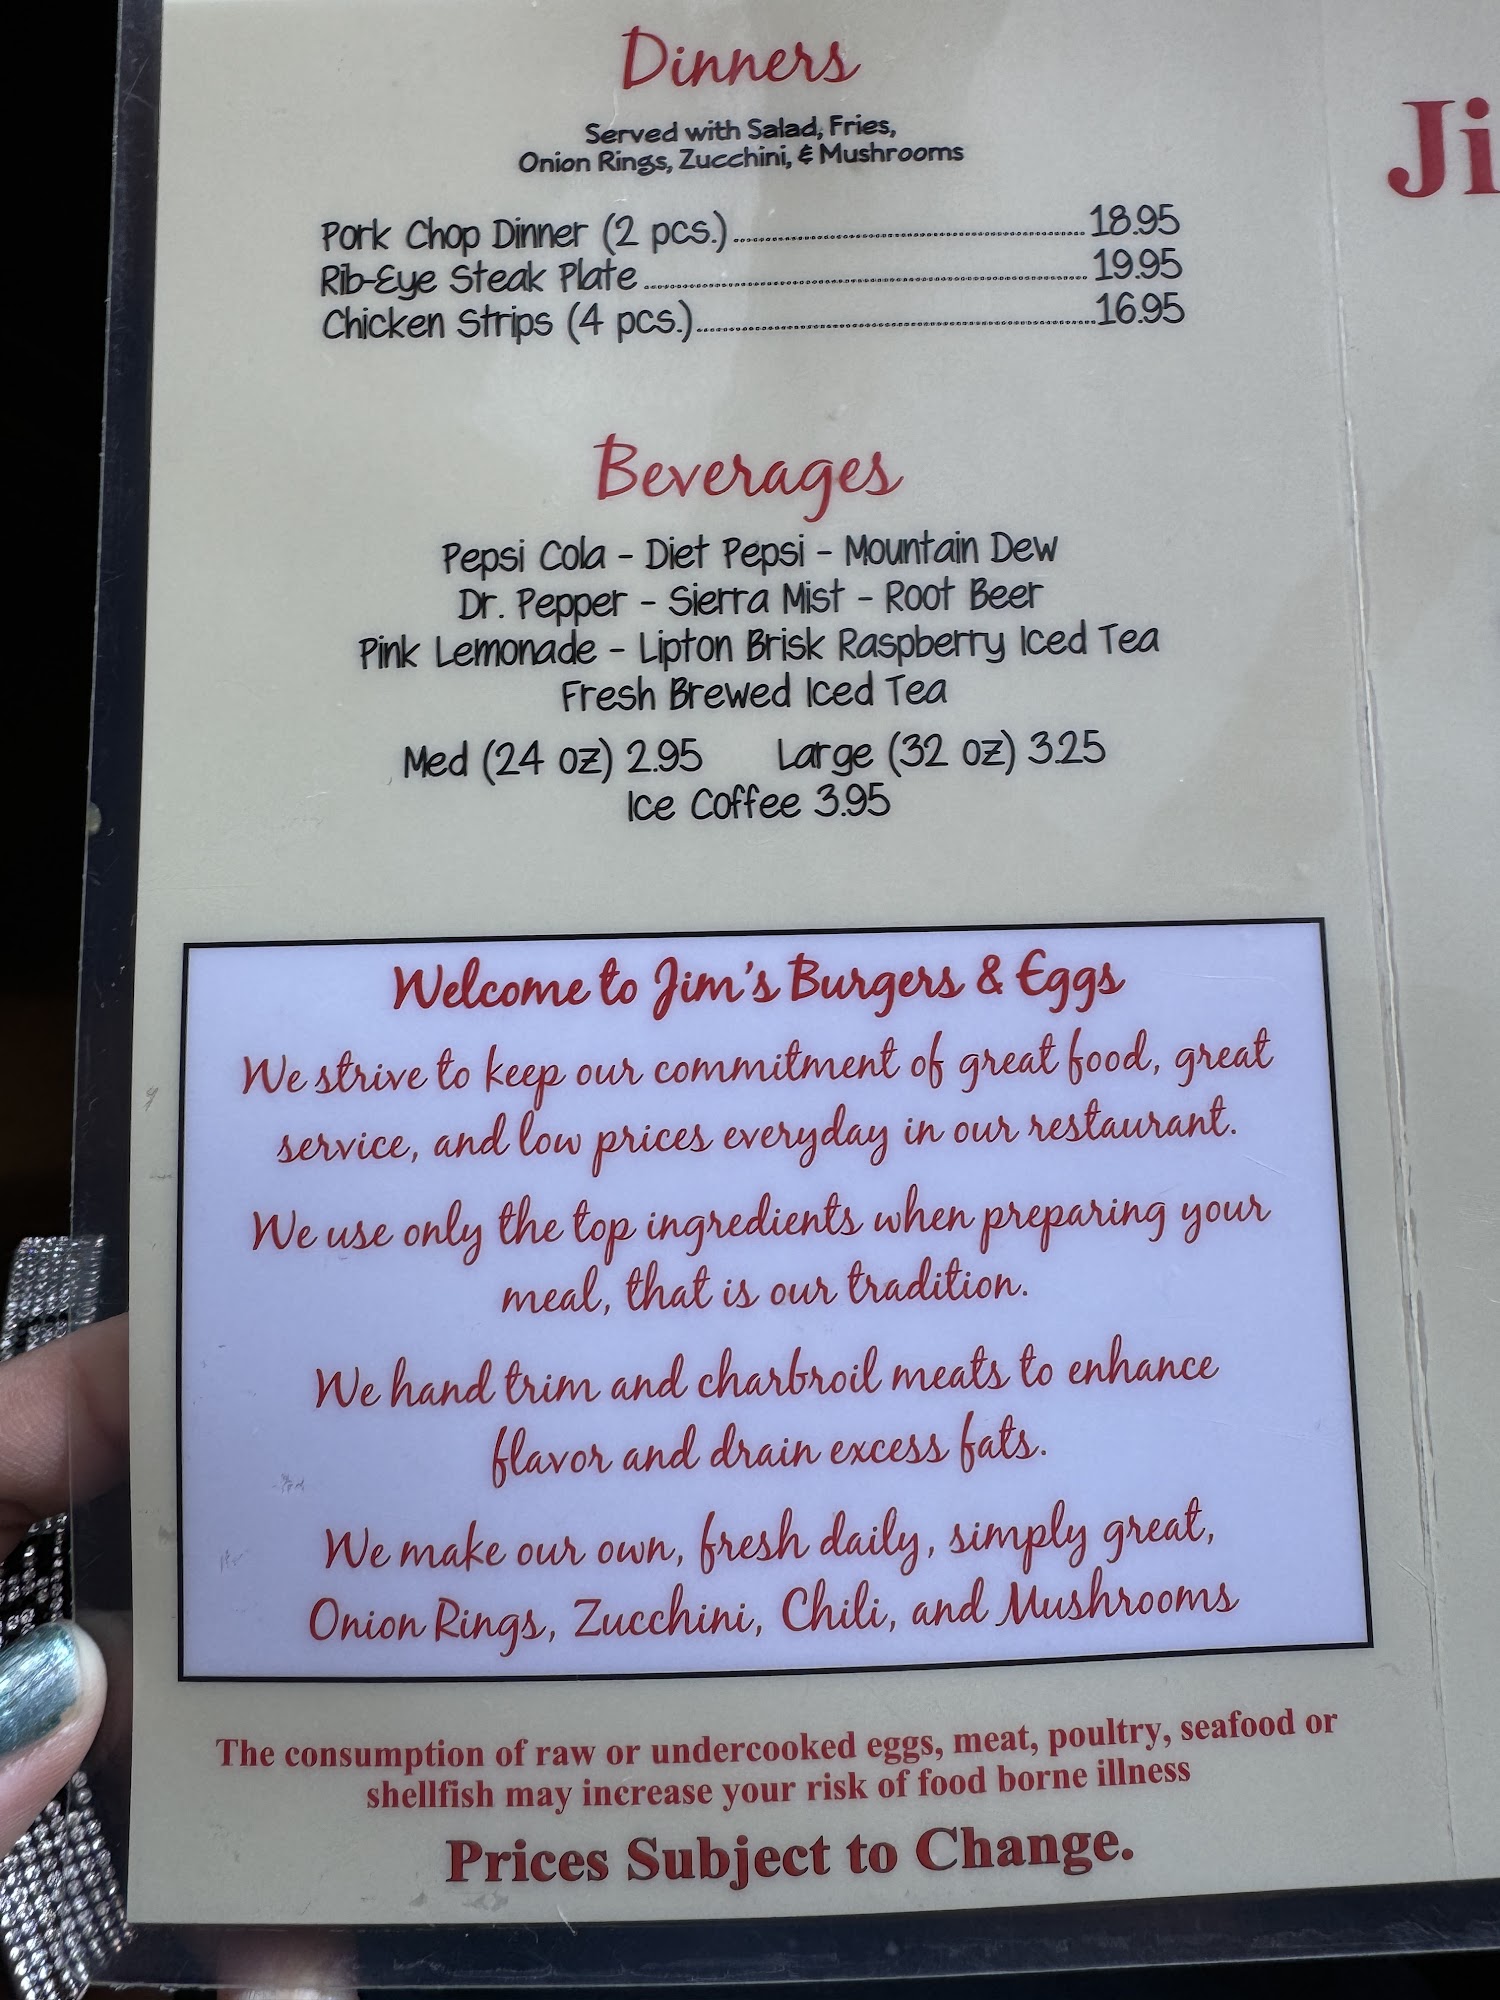 Dinners
Served with Salad, Fries,
Onion Rings, Zucchini, & Mushrooms
Pork Chop Dinner (2 pcs.) 18.95
Rib-Eye Steak Plate 19.95
Chicken Strips (4 pcs.) 16.95
Beverages
Pepsi Cola - Diet Pepsi - Mountain Dew
Dr. Pepper - Sierra Mist - Root Beer
Pink Lemonade - Lipton Brisk Raspberry Iced Tea
Fresh Brewed Iced Tea
Med (24 oz) 2.95 Large (32 oz) 3.25
Ice Coffee 3.95
Welcome to Jim's Burgers & Eggs
We strive to keep our commitment of great food, great
service, and low prices everyday in our restaurant.
We use only the top ingredients when preparing your
meal, that is our tradition.
We hand trim and charbroil meats to enhance
flavor and drain excess fats.
We make our own, fresh daily, simply great,
Onion Rings, Zucchini, Chili, and Mushrooms
The consumption of raw or undercooked eggs, meat, poultry, seafood or
shellfish may increase your risk of food borne illness
Prices Subject to Change.
Ji